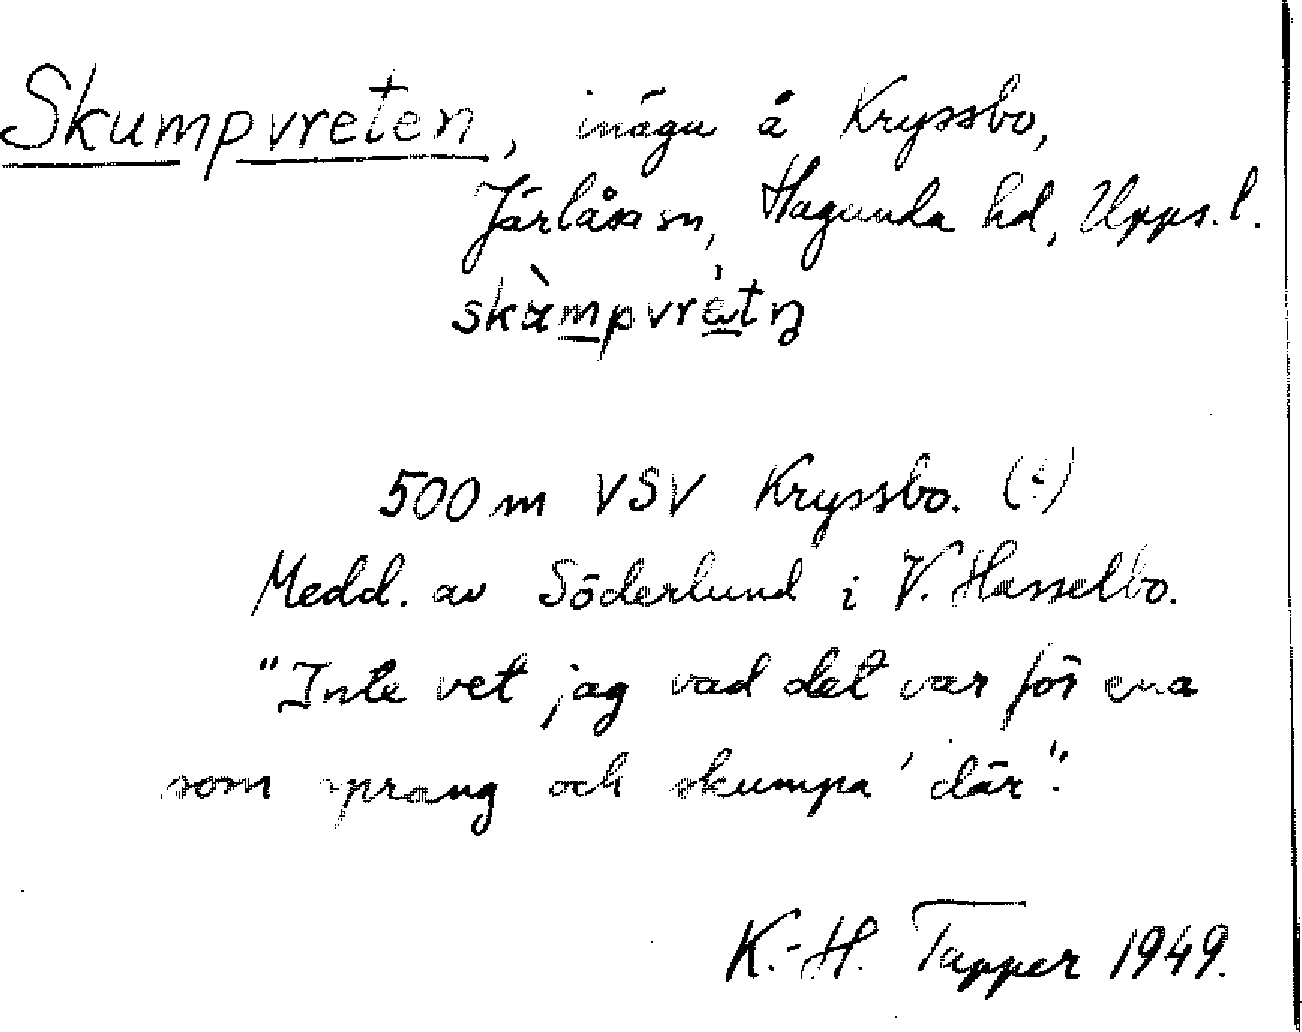 Skumpvreten, inägu å Kryssbo,
Järlåsa sn, Hagunda hd, Upps. l.
500 m VSV Kryssbo.
Medd. av Söderlund i V. Hasselbo.
"Inte vet jag vad det var för ena
som sprang och skumpa' där".
K.-H. Tapper 1949.